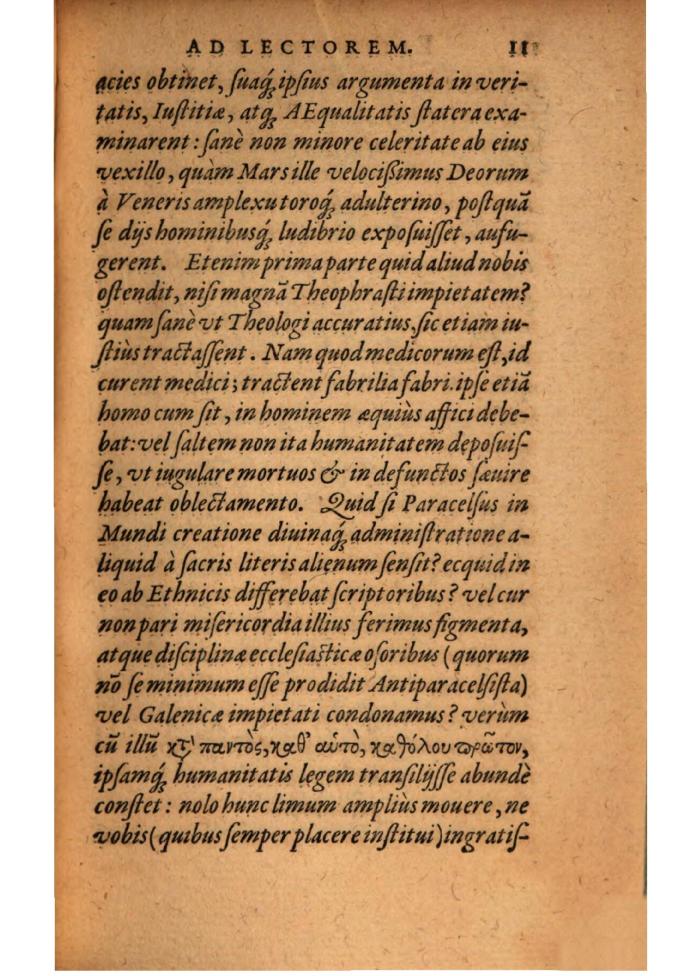 AD LECTOREM. 11
acies obtinet, ſuaq́; ipſius argumenta in veri-
tatis, Iuſtitiæ, atq; AEqualitatis ſtatera exa-
minarent: ſanè non minore celeritate ab eius
vexillo, quàm Mars ille velocißimus Deorum
à Veneris amplexu toroq́; adulterino, poſtquã
ſe dijs hominibusq́; ludibrio expoſuiſſet, aufu-
gerent. Etenim prima parte quid aliud nobis
oſtendit, niſi magnã Theophraſti impietatem?
quam ſanè vt Theologi accuratius, ſic etiam iu-
ſtiùs tractaſſent. Nam quod medicorum eſt, id
curent medici; tractent fabrilia fabri. ipſe etiã
homo cum ſit, in hominem æquiùs affici debe-
bat: vel ſaltem non ita humanitatem depoſuiſ-
ſe, vt iugulare mortuos & in defunctos ſæuire
habeat oblectamento. Quid ſi Paracelſus in
Mundi creatione diuinaq́; adminiſtratione a-
liquid à ſacris literis alienum ſenſit? ecquid in
eo ab Ethnicis differebat ſcriptoribus? vel cur
non pari miſericordia illius ferimus figmenta,
atque diſciplinæ eccleſiaſticæ oſoribus (quorum
nõ ſe minimum eſſe prodidit Antiparacelſiſta)
vel Galenicæ impietati condonamus? verùm
cũ illũ κτ̀ παντὸς, καθ' αὑτὸ, καθόλου πρῶτον,
ipſamq́; humanitatis legem tranſilijſſe abundè
conſtet: nolo hunc limum ampliùs mouere, ne
vobis (quibus ſemper placere inſtitui) ingratiſ-